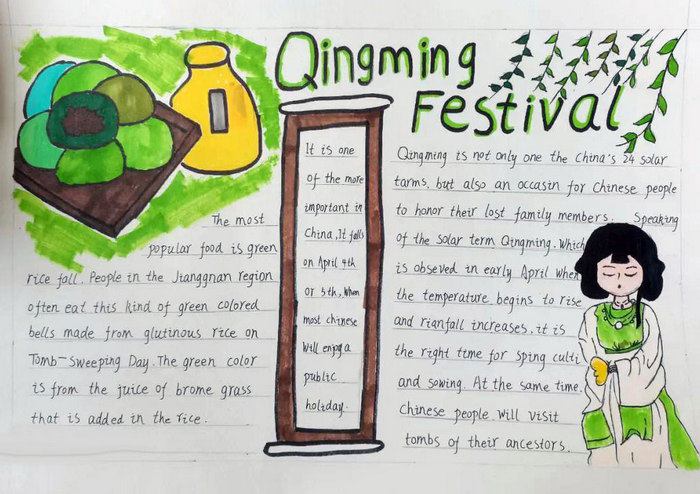 Qingming
Festival
The most
popular food is green
rice fall. People in the Jianggnan region
often eat this kind of green colored
bells made from glutinous rice on
Tomb-Sweeping Day. The green color
is from the juice of brome grass
that is added in the rice.
It is one
of the more
important in
China. It falls
on April 4th
or 5th, when
most chinese
will enjoy a
public
holiday.
Qingming is not only one the China's 24 solar
tarms, but also an occasin for Chinese people
to honor their lost family members. Speaking
of the solar term Qingming. Which
is obseved in early April when
the temperature begins to rise
and rianfall increases, it is
the right time for sping culti
and sowing. At the same time.
Chinese people will visit
tombs of their ancestors.